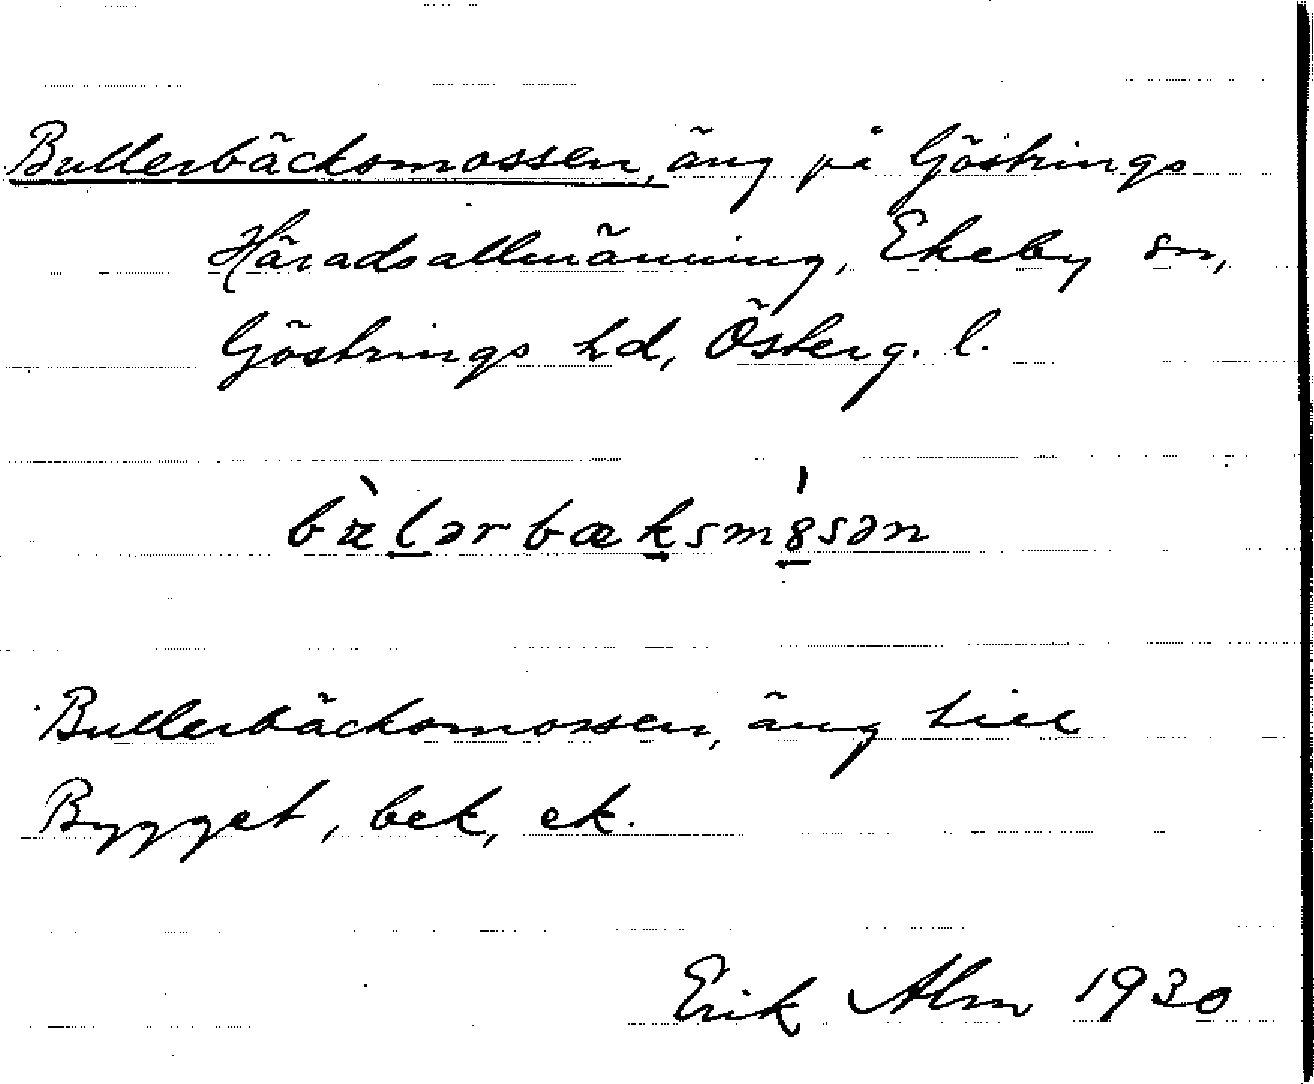 Bullerbäcksmossen, äng på Göstrings
Häradsallmänning, Ekeby sn,
Göstrings hd, Österg. l.
Bullerbäcksmossen, äng till
Bygget, bek, ek.
Erik Alm 1930